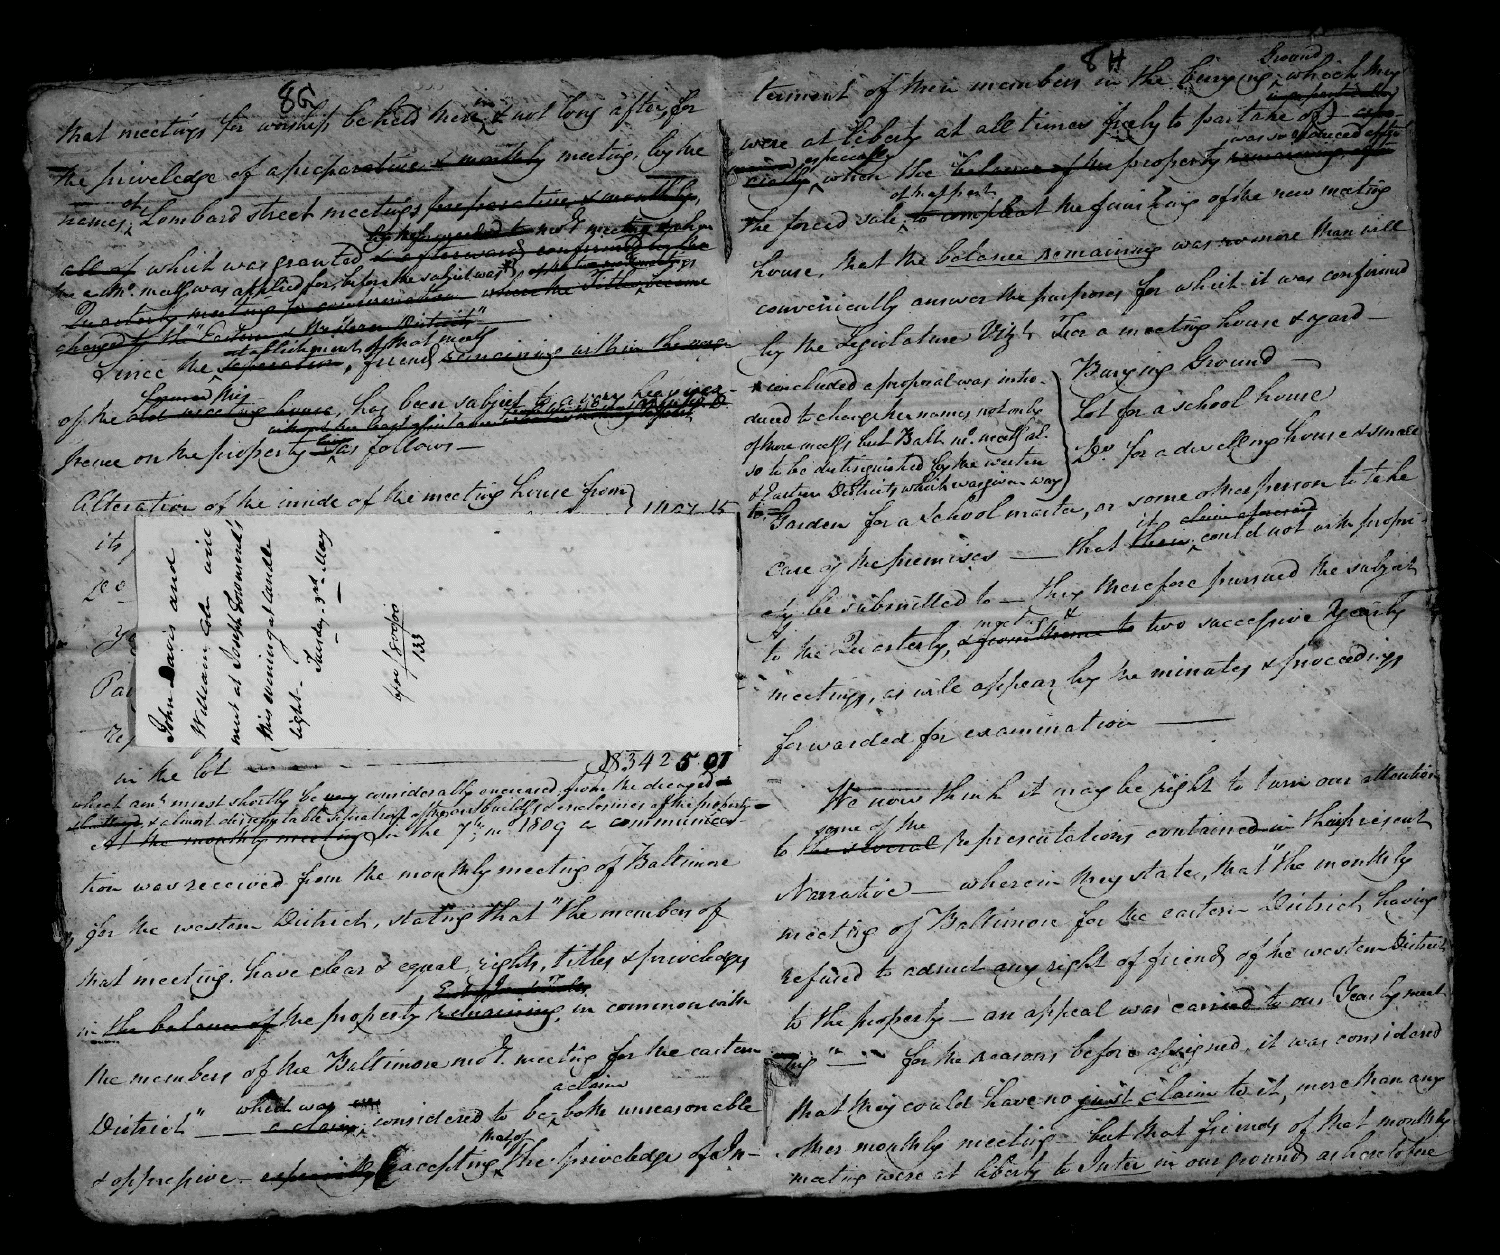 8G
that meetings for worship be held therein & not long after, for
the priveledge of a preparative & monthly meeting, by the
names of Lombard street meetings preparative & monthly,
all of which was granted
the mo. meetg was applied for, before the subject was
Quarterly meeting for confirmation when the Titles became
changed to the "Eastern & Western District"
establishment of that meetg
Since the Seperation, friends remaining within the verge
of the old meeting house, has been subject to a very heavy ex-
pence on the property as follows —
Alteration of the inside of the meeting house from
its
Do
Pai
in the lot — $8342 50
which amt. must shortly be very considerably encreased from the decayed
& almost dissreputable situation of the outbuildgs & enclosures of the property —
At the monthly meeting in the 7th. mo. 1809 a communica-
tion was received from the monthly meeting of Baltimore
for the western District, stating that "the members of
that meeting have clear & equal, rights, titles & priveledges
in the balance of the property remaining, in common with
the members of the Baltimore mo. meeting for the eastern
District" — which was a claim considered to be a claim both unreasonable
& oppressive — especially accepting that of the priveledge of In-
John Davis and
William Cole will
meet at Joseph Townsend's
this evening at Candle
light — Tuesday 3rd. May
133
8H
terment of their members in the burying Ground which they
were at liberty at all times freely to partake of) — espe-
cially especially when the balance of the property was so reduced after
of that part
the forced sale to compleat the finishing of the new meeting
house, that the balance remaining was no more than will
conveniently answer the purposes for which it was confirmed
by the Legislature Vizt. For a meeting house & yard —
Burying Ground —
Lot for a school house
Do. for a dwelling house & small
* included a proposal was intro-
duced to change her names, not only
of those meetgs but Balt. mo. meetg al-
so to be distinguished by the western
& Eastern Districts which was given way
to =
Garden for a School master, or some other person to take
care of the premises — that their it could not with propri-
ety be submitted to — they therefore pursued the subject
to the Quarterly, meeting & from thence to two successive Yearly
meetings, as will appear by the minutes & proceedings
forwarded for examination —
We now think it may be right to turn our attention
to the several some of the Representations contained in their present
Narrative — wherein they state, that "the monthly
meeting of Baltimore for the eastern District having
refused to admit any right of friends of the western District
to the property — an appeal was carried to our Yearly meet-
ing" — for the reasons before assigned, it was considered
that they could have no just claim to it, more than any
other monthly meeting — but that friends of that monthly
meeting were at liberty to Inter in our grounds as heretofore